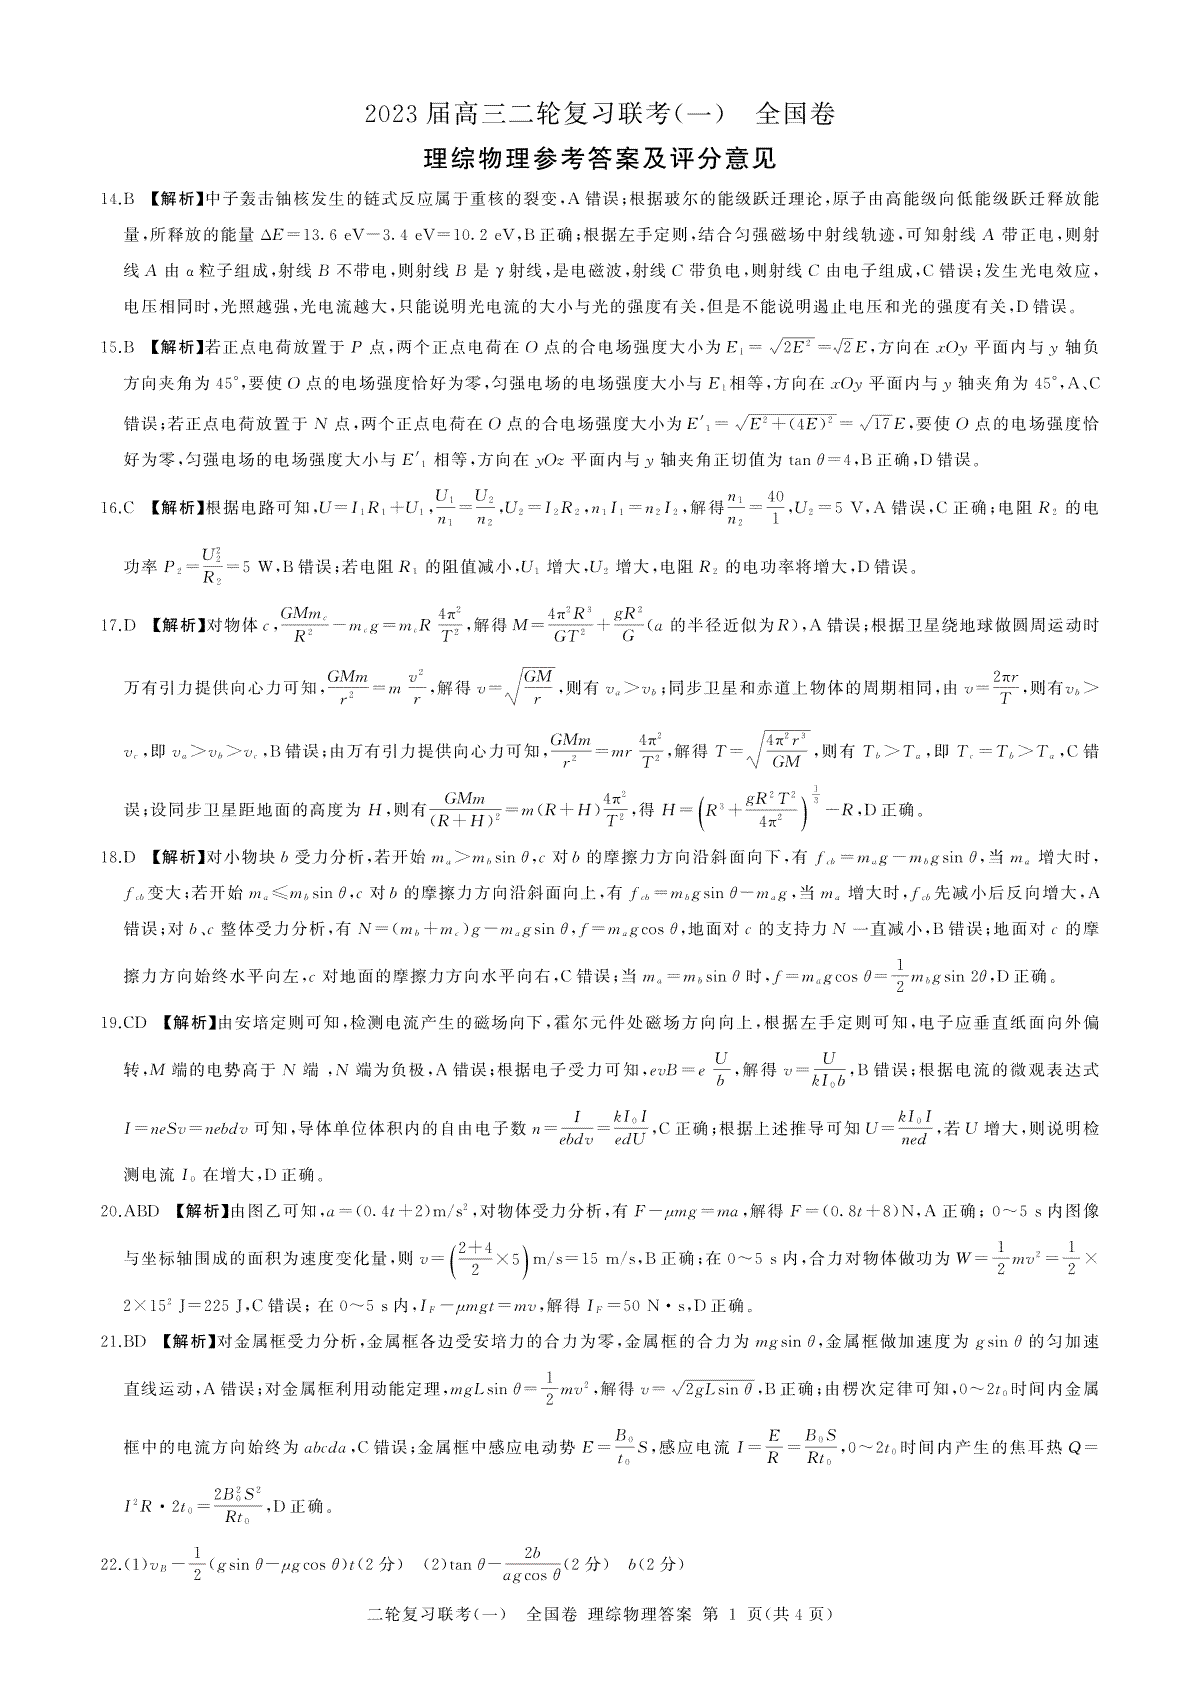 2023 届高三二轮复习联考(一)　全国卷
理综物理参考答案及评分意见
14.B 【解析】中子轰击铀核发生的链式反应属于重核的裂变,A 错误;根据玻尔的能级跃迁理论,原子由高能级向低能级跃迁释放能
量,所释放的能量 ΔE=13.6 eV−3.4 eV=10.2 eV,B 正确;根据左手定则,结合匀强磁场中射线轨迹,可知射线 A 带正电,则射
线 A 由 α 粒子组成,射线 B 不带电,则射线 B 是 γ 射线,是电磁波,射线 C 带负电,则射线 C 由电子组成,C 错误;发生光电效应,
电压相同时,光照越强,光电流越大,只能说明光电流的大小与光的强度有关,但是不能说明遏止电压和光的强度有关,D 错误。
15.B 【解析】若正点电荷放置于 P 点,两个正点电荷在 O 点的合电场强度大小为 E₁=√(2E²)=√2E,方向在 xOy 平面内与 y 轴负
方向夹角为 45°,要使 O 点的电场强度恰好为零,匀强电场的电场强度大小与 E₁相等,方向在 xOy 平面内与 y 轴夹角为 45°,A、C
错误;若正点电荷放置于 N 点,两个正点电荷在 O 点的合电场强度大小为 E′₁=√(E²+(4E)²)=√17E,要使 O 点的电场强度恰
好为零,匀强电场的电场强度大小与 E′₁ 相等,方向在 yOz 平面内与 y 轴夹角正切值为 tan θ=4,B 正确,D 错误。
16.C 【解析】根据电路可知,U=I₁R₁+U₁,U₁/n₁=U₂/n₂,U₂=I₂R₂,n₁I₁=n₂I₂,解得 n₁/n₂=40/1,U₂=5 V,A 错误,C 正确;电阻 R₂ 的电
功率 P₂=U₂²/R₂=5 W,B 错误;若电阻 R₁ 的阻值减小,U₁ 增大,U₂ 增大,电阻 R₂ 的电功率将增大,D 错误。
17.D 【解析】对物体 c,GMm_c/R²−m_cg=m_cR 4π²/T²,解得 M=4π²R³/GT²+gR²/G(a 的半径近似为R),A 错误;根据卫星绕地球做圆周运动时
万有引力提供向心力可知,GMm/r²=m v²/r,解得 v=√(GM/r),则有 v_a>v_b;同步卫星和赤道上物体的周期相同,由 v=2πr/T,则有v_b>
v_c,即 v_a>v_b>v_c,B 错误;由万有引力提供向心力可知,GMm/r²=mr 4π²/T²,解得 T=√(4π²r³/GM),则有 T_b>T_a,即 T_c=T_b>T_a,C 错
误;设同步卫星距地面的高度为 H,则有 GMm/(R+H)²=m(R+H)4π²/T²,得 H=(R³+gR²T²/4π²)^(1/3)−R,D 正确。
18.D 【解析】对小物块 b 受力分析,若开始 m_a>m_b sin θ,c 对 b 的摩擦力方向沿斜面向下,有 f_cb=m_ag−m_bg sin θ,当 m_a 增大时,
f_cb变大;若开始 m_a⩽m_b sin θ,c 对 b 的摩擦力方向沿斜面向上,有 f_cb=m_bg sin θ−m_ag,当 m_a 增大时,f_cb先减小后反向增大,A
错误;对 b、c 整体受力分析,有 N=(m_b+m_c)g−m_ag sin θ,f=m_ag cos θ,地面对 c 的支持力 N 一直减小,B 错误;地面对 c 的摩
擦力方向始终水平向左,c 对地面的摩擦力方向水平向右,C 错误;当 m_a=m_b sin θ 时,f=m_ag cos θ=1/2 m_bg sin 2θ,D 正确。
19.CD 【解析】由安培定则可知,检测电流产生的磁场向下,霍尔元件处磁场方向向上,根据左手定则可知,电子应垂直纸面向外偏
转,M 端的电势高于 N 端 ,N 端为负极,A 错误;根据电子受力可知,evB=e U/b,解得 v=U/kI₀b,B 错误;根据电流的微观表达式
I=neSv=nebdv 可知,导体单位体积内的自由电子数 n=I/ebdv=kI₀I/edU,C 正确;根据上述推导可知 U=kI₀I/ned,若 U 增大,则说明检
测电流 I₀ 在增大,D 正确。
20.ABD 【解析】由图乙可知,a=(0.4t+2)m/s²,对物体受力分析,有 F−μmg=ma,解得 F=(0.8t+8)N,A 正确; 0～5 s 内图像
与坐标轴围成的面积为速度变化量,则 v=((2+4)/2×5)m/s=15 m/s,B 正确;在 0～5 s 内,合力对物体做功为 W=1/2 mv²=1/2×
2×15² J=225 J,C 错误; 在 0～5 s 内,I_F−μmgt=mv,解得 I_F=50 N·s,D 正确。
21.BD 【解析】对金属框受力分析,金属框各边受安培力的合力为零,金属框的合力为 mg sin θ,金属框做加速度为 g sin θ 的匀加速
直线运动,A 错误;对金属框利用动能定理,mgL sin θ=1/2 mv²,解得 v=√(2gL sin θ),B 正确;由楞次定律可知,0～2t₀时间内金属
框中的电流方向始终为 abcda,C 错误;金属框中感应电动势 E=B₀/t₀ S,感应电流 I=E/R=B₀S/Rt₀,0～2t₀时间内产生的焦耳热 Q=
I²R·2t₀=2B₀²S²/Rt₀,D 正确。
22.(1)v_B−1/2(g sin θ−μg cos θ)t(2 分)　(2)tan θ−2b/ag cos θ(2 分)　b(2 分)
二轮复习联考(一)　全国卷 理综物理答案 第 1 页(共 4 页)